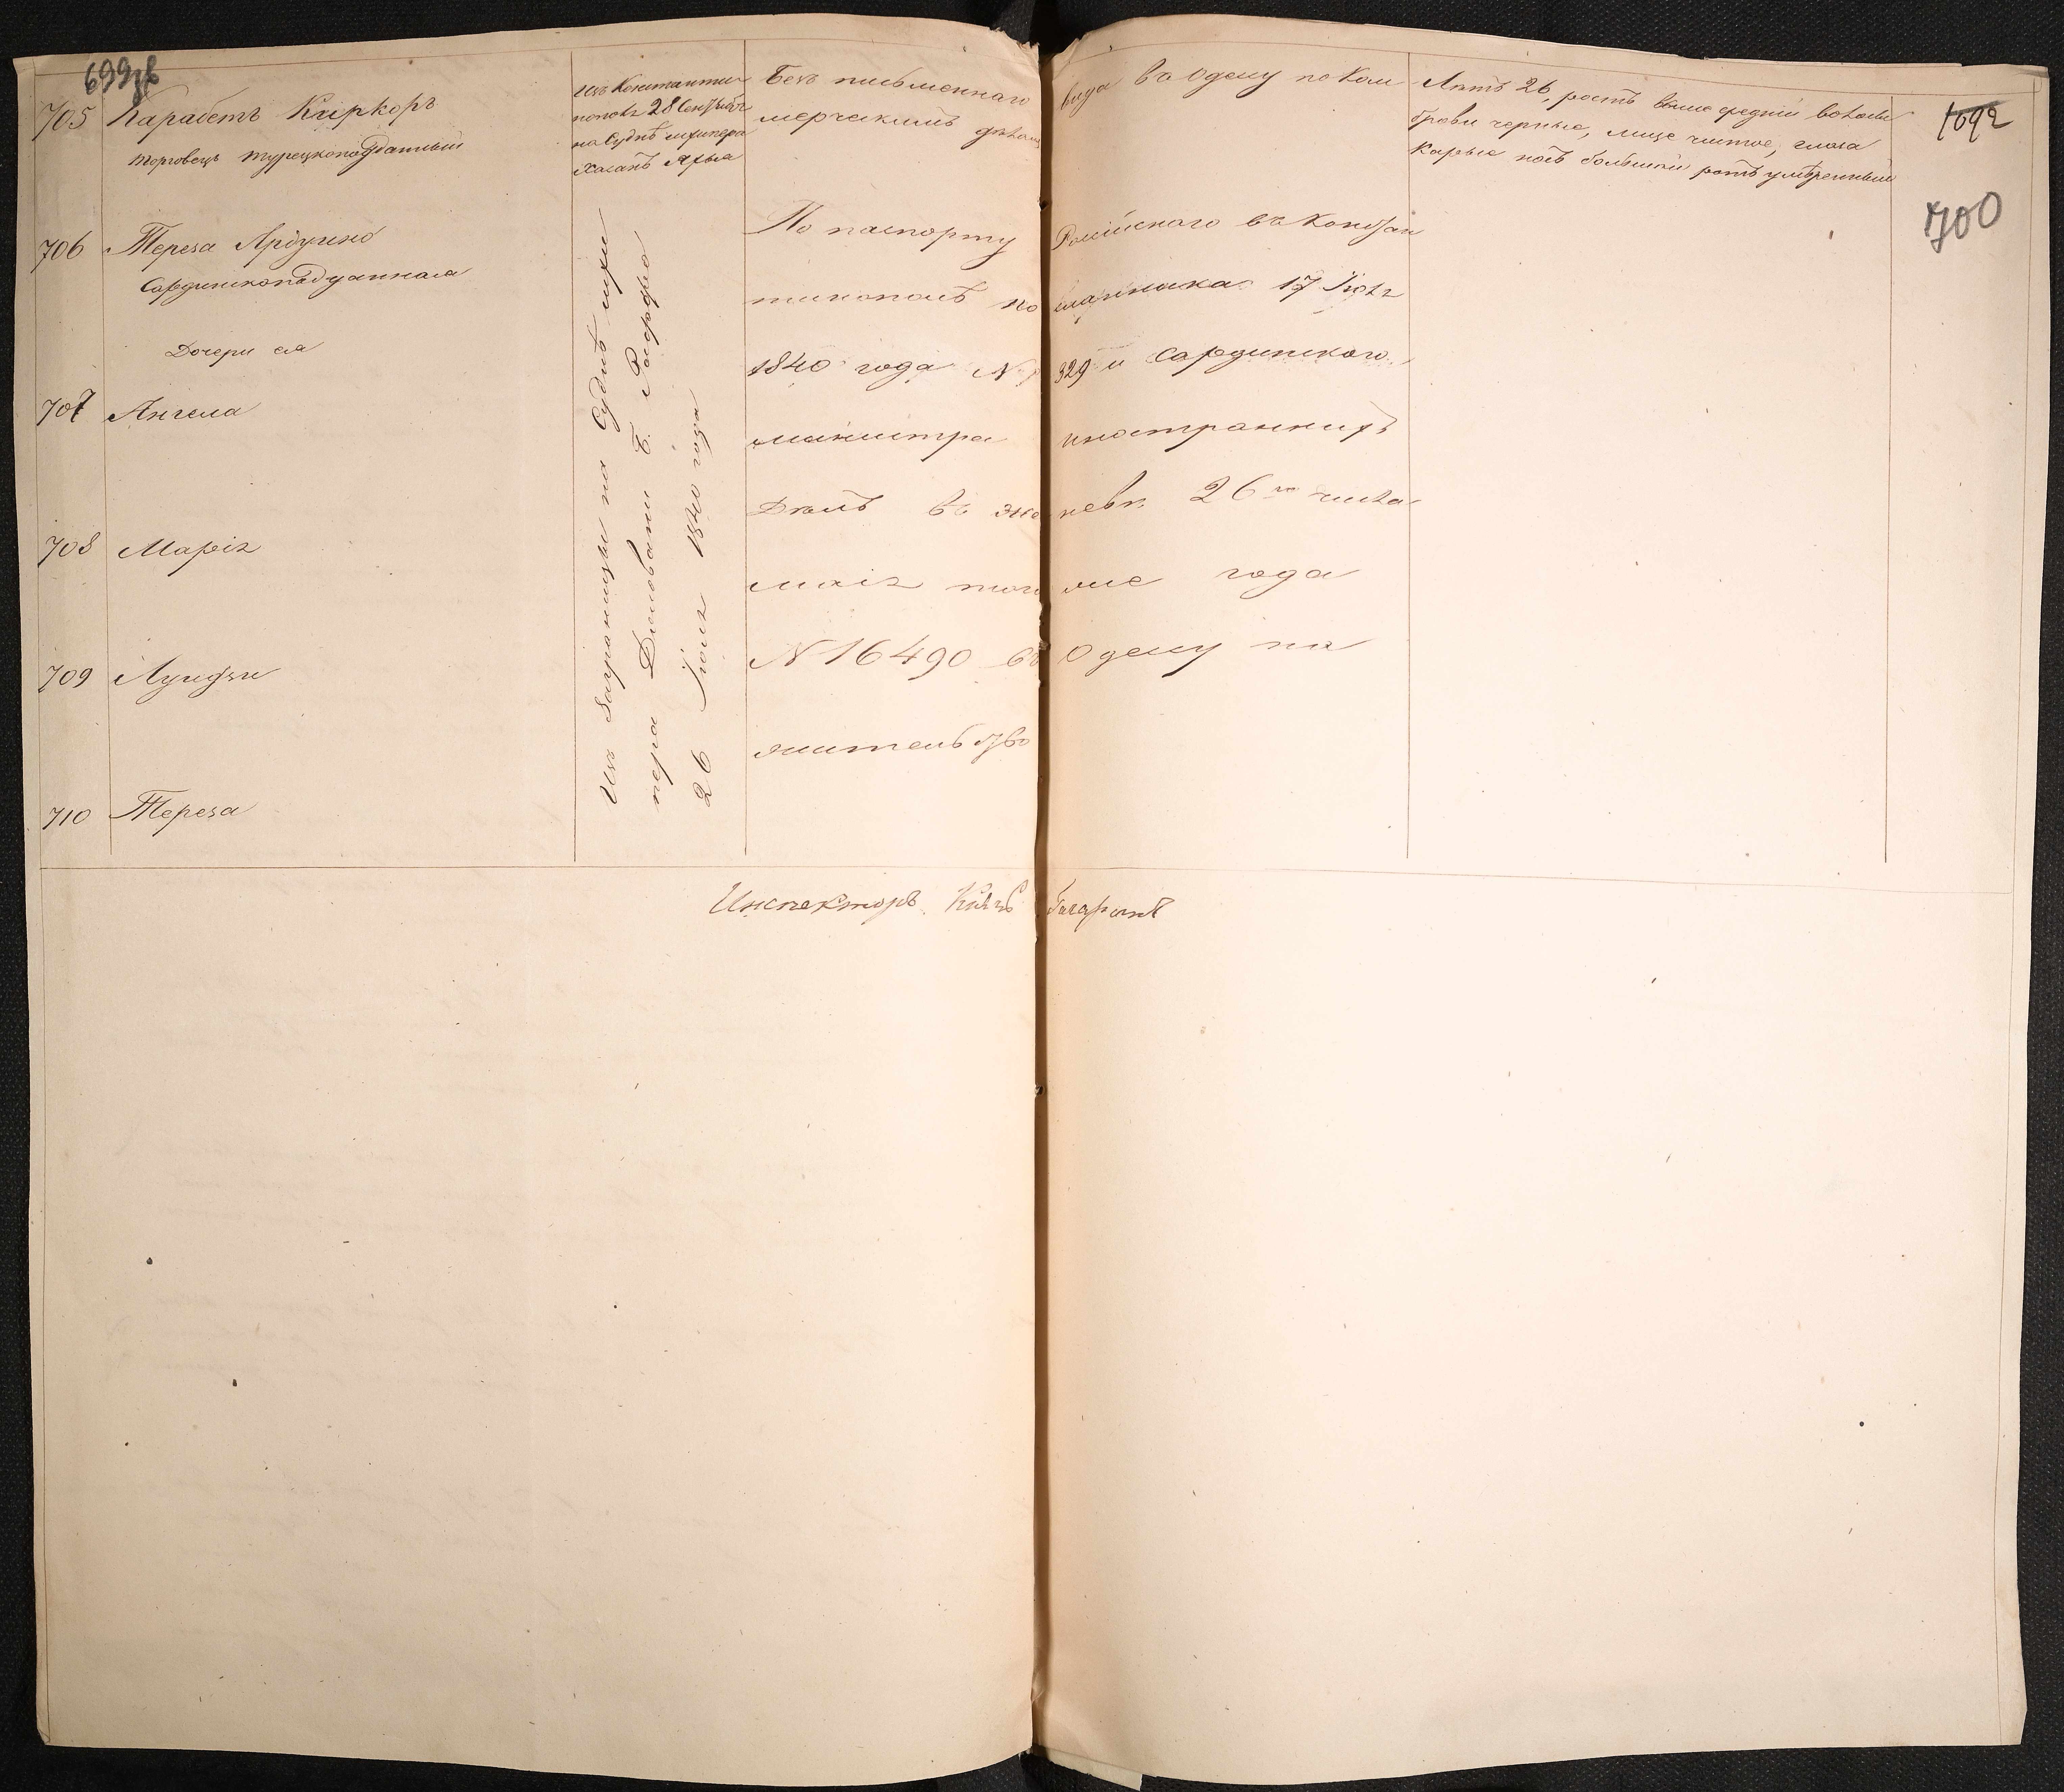 699 об
705 Карабетъ Киркоръ
торговецъ турецкоподданный
Изъ Константи
нополя 28 Сентября
на Суднѣ шхипера
Хасанъ
Безъ письменнаго вида въ Одессу по Ком
мерческимъ дѣламъ
Лѣтъ 26, ростъ выше средній волосы
брови черные, лице чистое, глаза
Карые носъ большой ротъ умѣренный
1092
700
706 Тереза Ардуино
Сардинскоподданная
Дочери ея
707 Ангела
708 Марія
709 Луидзи
710 Тереза
Изъ заграницы на Суднѣ шхи
пера Джовани Б.
26 Іюля 1840 года
По паспорту Россійскаго въ Констан
тинополѣ по 17 Іюля
1840 года № 329 и Сардинскаго
министра иностранныхъ
Дѣлъ въ Женевѣ 26го числа
маія того же года
№ 16490 въ Одессу на
жительство
Инспекторъ Князь